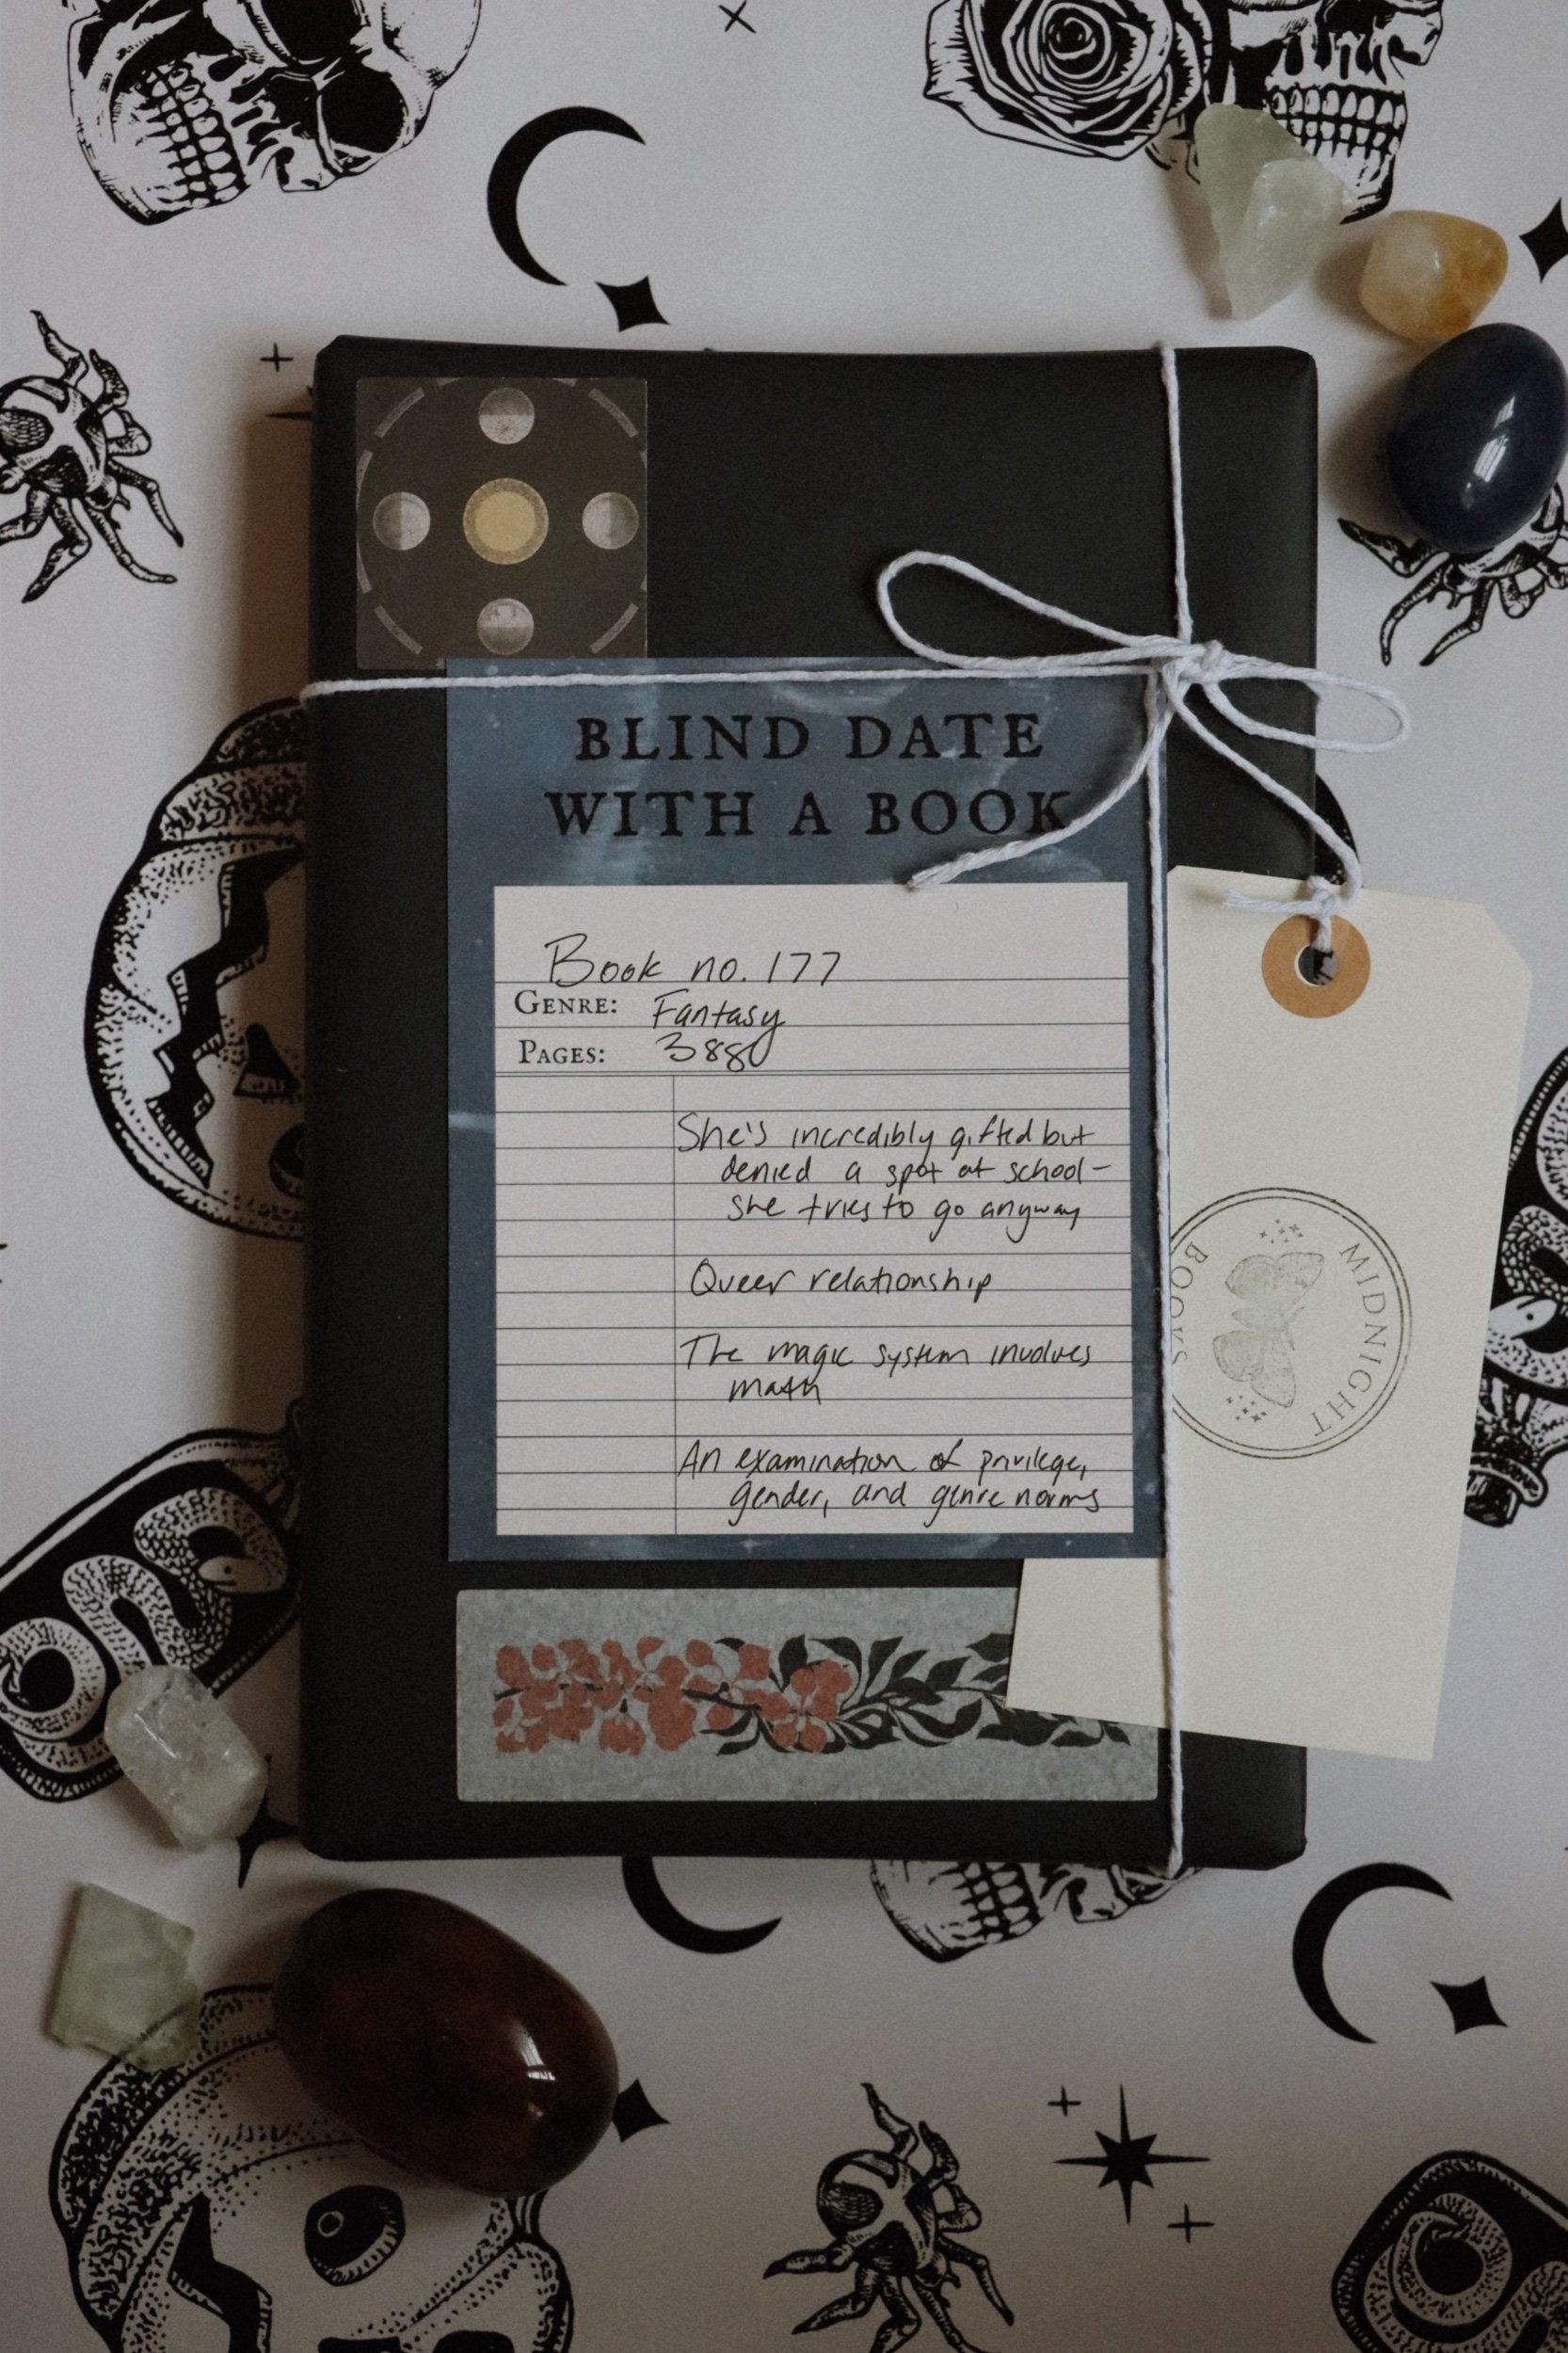 BLIND DATE
WITH A BOOK
Book no. 177
GENRE: Fantasy
PAGES: 388
She's incredibly gifted but
denied a spot at school-
she tries to go anyway
Queer relationship
The magic system involves
math
An examination of privilege,
gender, and genre norms
MIDNIGHT
BOOKS